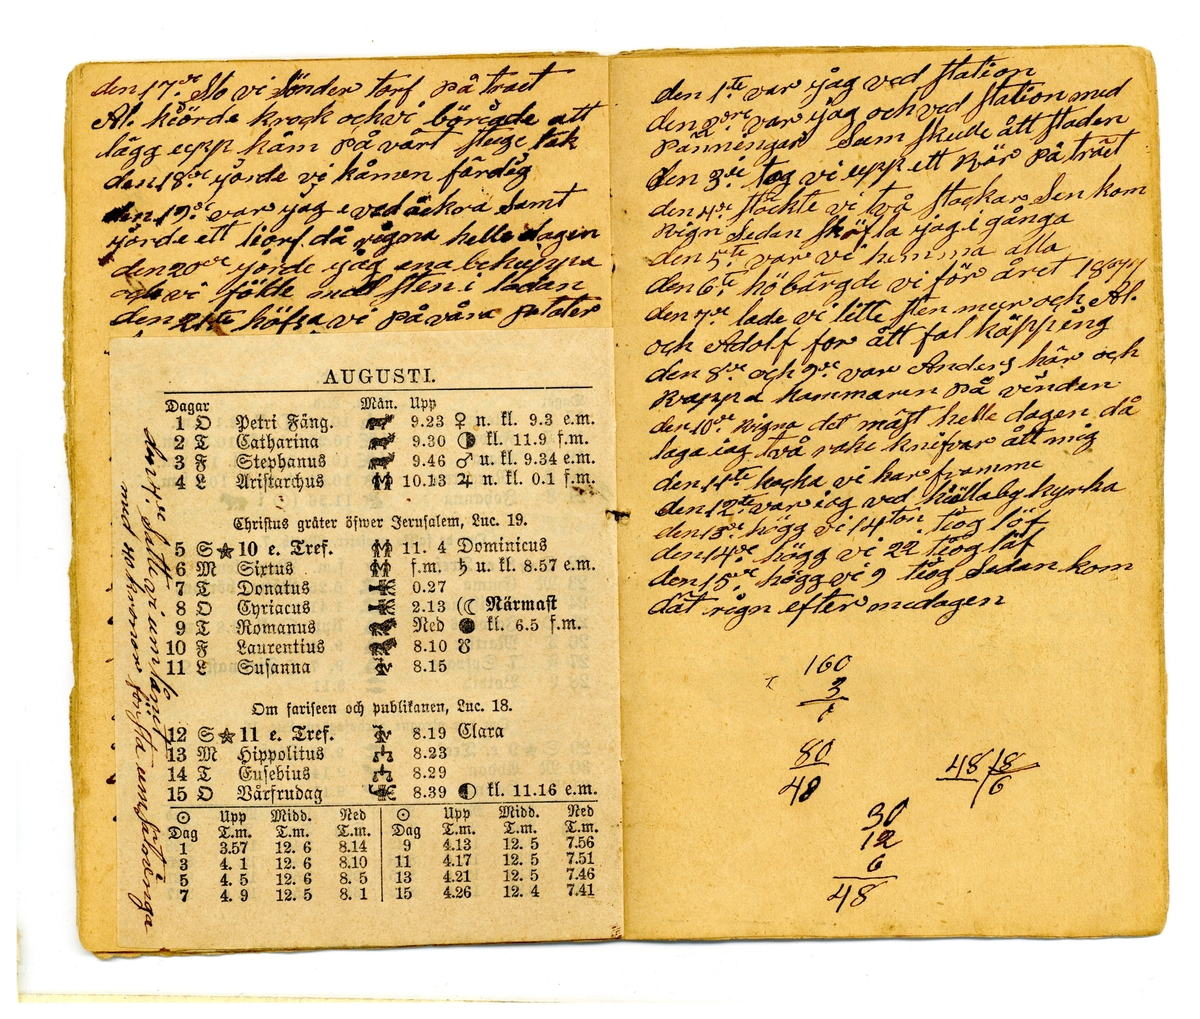 den 17de. Slo vi sönder torf på träet
Al. kiörde krock ochvi börigde att
lägg upp håm på vårt stuge tak
den 18de jörde vi håmen färdig
den 19de var jag e ved åekra samt
jörde ett liorf. då rigna helle dagin
den 20de jörde jåg ena behuppa
och vi fökte med sten i ladan
den 21ste höfsa vi på våra potater
AUGUSTI.
Dagar Mån. Upp
1 O Petri Fäng. 9.23 ♀ n. kl. 9.3 e.m.
2 T Catharina 9.30 kl. 11.9 f.m.
3 F Stephanus 9.46 ♂ u. kl. 9.34 e.m.
4 L Aristarchus 10.13 ♃ n. kl. 0.1 f.m.
Christus gråter öfwer Jerusalem, Luc. 19.
5 S ★ 10 e. Tref. 11. 4 Dominicus
6 M Sixtus f.m. ♄ u. kl. 8.57 e.m.
7 T Donatus 0.27
8 O Cyriacus 2.13 (☾ Närmast
9 T Romanus Ned ● kl. 6.5 f.m.
10 F Laurentius 8.10 ☋
11 L Susanna 8.15
Om fariseen och publikanen, Luc. 18.
12 S ★ 11 e. Tref. 8.19 Clara
13 M Hippolitus 8.23
14 T Eusebius 8.29
15 O Vårfrudag 8.39 kl. 11.16 e.m.
☉ Upp Midd. Ned ☉ Upp Midd. Ned
Dag T.m. T.m. T.m. Dag T.m. T.m. T.m.
1 3.57 12. 6 8.14 9 4.13 12. 5 7.56
3 4. 1 12. 6 8.10 11 4.17 12. 5 7.51
5 4. 5 12. 6 8. 5 13 4.21 12. 5 7.46
7 4. 9 12. 5 8. 1 15 4.26 12. 4 7.41
den 4de. satte vi um
med kornor första
den 1ste var jåg ved station
den 2dre var jåg och ved station med
pänningar Sam skude ått staden
den 3de tog vi upp ett Rör på träet
den 4de stöckte vi två stockar Sen kom
Rign Sedan sköfla jag i gånga
den 5te var vi hemma alla
den 6te. höbärgde vi för året 1877
den 7de lade vi litte sten mur och Al.
och Adolf for ått fal käpping
den 8de och 9de var Anders här och
Rappa kammaren på vinden
den 10de Rigna det mäst helle dagen då
laga iag två rake knifvar ått mig
den 11te hacka vi har framme
den 12te var iag ved hällaby kyrka
den 13de högg vi 14ton tiog löf
den 14de högg vi 22 tiog löf
den 15de högg vi 9 tiog Sedan kom
dät rign efter midagen
160
3
80
48
48 18
6
30
12
6
48